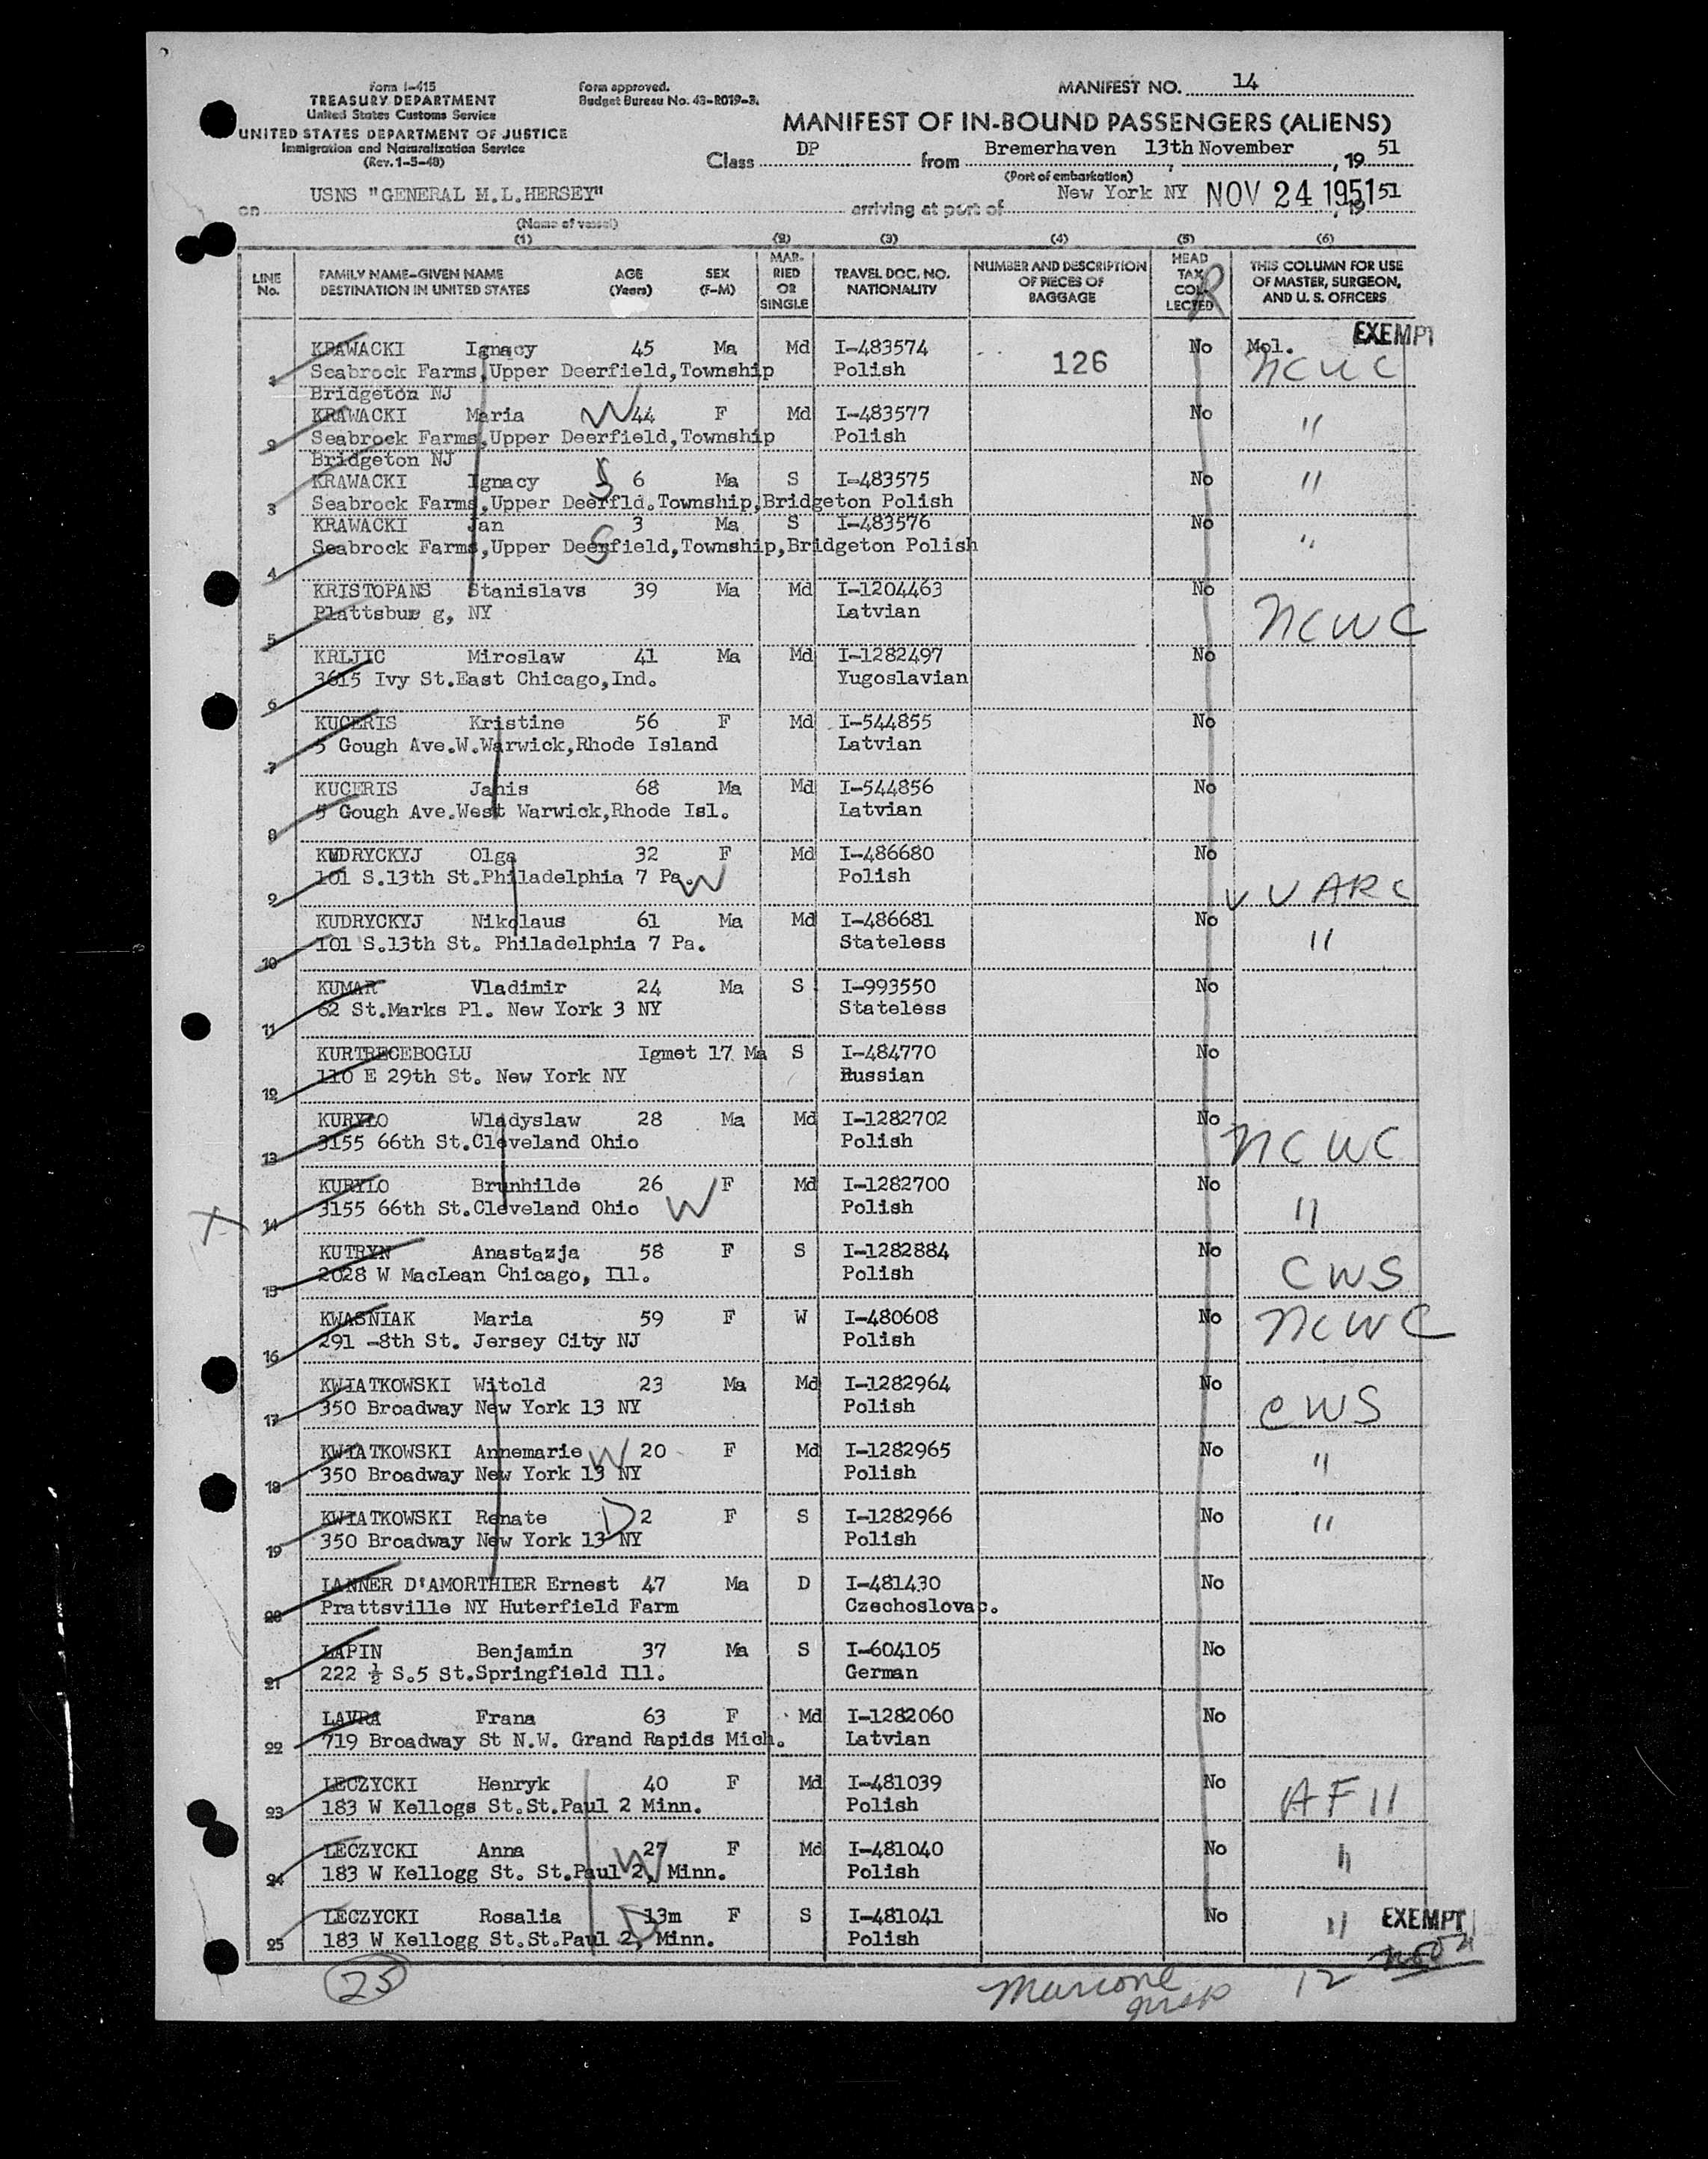 Form I-415
TREASURY DEPARTMENT
United States Customs Service
UNITED STATES DEPARTMENT OF JUSTICE
Immigration and Naturalization Service
(Rev. 1-5-48)
Form approved.
Budget Bureau No. 43-R019-3.
MANIFEST NO. 14
MANIFEST OF IN-BOUND PASSENGERS (ALIENS)
Class DP from Bremerhaven 13th November, 1951
(Port of embarkation)
on USNS "GENERAL M.L.HERSEY" arriving at port of New York NY NOV 24 1951, 1951
(Name of vessel)
(1) (2) (3) (4) (5) (6)
LINE No. FAMILY NAME-GIVEN NAME DESTINATION IN UNITED STATES AGE (Years) SEX (F-M) MARRIED OR SINGLE TRAVEL DOC. NO. NATIONALITY NUMBER AND DESCRIPTION OF PIECES OF BAGGAGE HEAD TAX COLLECTED THIS COLUMN FOR USE OF MASTER, SURGEON, AND U. S. OFFICERS
EXEMPT
KRAWACKI Ignacy 45 Ma Md I-483574 126 No Mol.
1 Seabrock Farms,Upper Deerfield,Township Polish NCWC
Bridgeton NJ
KRAWACKI Maria W 44 F Md I-483577 No "
2 Seabrock Farms,Upper Deerfield,Township Polish
Bridgeton NJ
KRAWACKI Ignacy S 6 Ma S I-483575 No "
3 Seabrock Farms,Upper Deerfld.Township,Bridgeton Polish
KRAWACKI Jan 3 Ma S I-483576 No "
4 Seabrock Farms,Upper Deerfield,Township,Bridgeton Polish S
KRISTOPANS Stanislavs 39 Ma Md I-1204463 No
5 Plattsbur g, NY Latvian NCWC
KRLJIC Miroslaw 41 Ma Md I-1282497 No
6 3615 Ivy St.East Chicago,Ind. Yugoslavian
KUCERIS Kristine 56 F Md I-544855 No
7 5 Gough Ave.W.Warwick,Rhode Island Latvian
KUCERIS Janis 68 Ma Md I-544856 No
8 5 Gough Ave.West Warwick,Rhode Isl. Latvian
KUDRYCKYJ Olga 32 F Md I-486680 No
9 101 S.13th St.Philadelphia 7 Pa. W Polish UUARC
KUDRYCKYJ Nikolaus 61 Ma Md I-486681 No "
10 101 S.13th St. Philadelphia 7 Pa. Stateless
KUMAR Vladimir 24 Ma S I-993550 No
11 62 St.Marks Pl. New York 3 NY Stateless
KURTRECEBOGLU Igmet 17 Ma S I-484770 No
12 110 E 29th St. New York NY Russian
KURYLO Wladyslaw 28 Ma Md I-1282702 No
13 3155 66th St.Cleveland Ohio Polish NCWC
KURYLO Brunhilde 26 F Md I-1282700 No
X 14 3155 66th St.Cleveland Ohio W Polish "
KUTRYN Anastazja 58 F S I-1282884 No
15 2028 W MacLean Chicago, Ill. Polish CWS
KWASNIAK Maria 59 F W I-480608 No NCWC
16 291 -8th St. Jersey City NJ Polish
KWIATKOWSKI Witold 23 Ma Md I-1282964 No
17 350 Broadway New York 13 NY Polish CWS
KWIATKOWSKI Annemarie W 20 F Md I-1282965 No "
18 350 Broadway New York 13 NY Polish
KWIATKOWSKI Renate D 2 F S I-1282966 No "
19 350 Broadway New York 13 NY Polish
LANNER D'AMORTHIER Ernest 47 Ma D I-481430 No
20 Prattsville NY Huterfield Farm Czechoslovac.
LAPIN Benjamin 37 Ma S I-604105 No
21 222 ½ S.5 St.Springfield Ill. German
LAVRA Frana 63 F Md I-1282060 No
22 719 Broadway St N.W. Grand Rapids Mich. Latvian
LECZYCKI Henryk 40 F Md I-481039 No
23 183 W Kellogs St.St.Paul 2 Minn. Polish AF11
LECZYCKI Anna 27 F Md I-481040 No "
24 183 W Kellogg St. St.Paul 2, Minn. W Polish
LECZYCKI Rosalia D 13m F S I-481041 No " EXEMPT
25 183 W Kellogg St.St.Paul 2, Minn. Polish
25 12